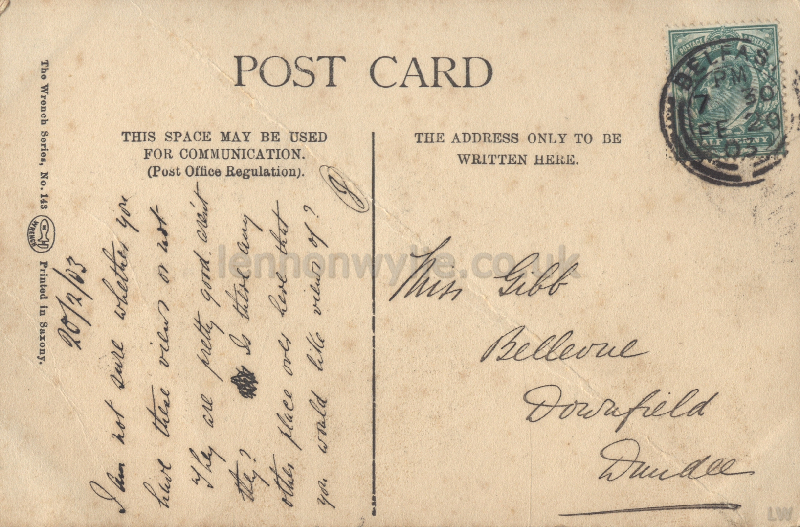 POST CARD
THIS SPACE MAY BE USED
FOR COMMUNICATION.
(Post Office Regulation).
THE ADDRESS ONLY TO BE
WRITTEN HERE.
The Wrench Series, No. 143
WRENCH
Printed in Saxony.
20/2/03
I am not sure whether you
have these views or not
They are pretty good arent
they? Is there any
other place over here that
you would like views of?
Miss Gibb
Bellevue
Downfield
Dundee
BELFAST
PM
7 30
FE 20
03
lennonwylie.co.uk
LW